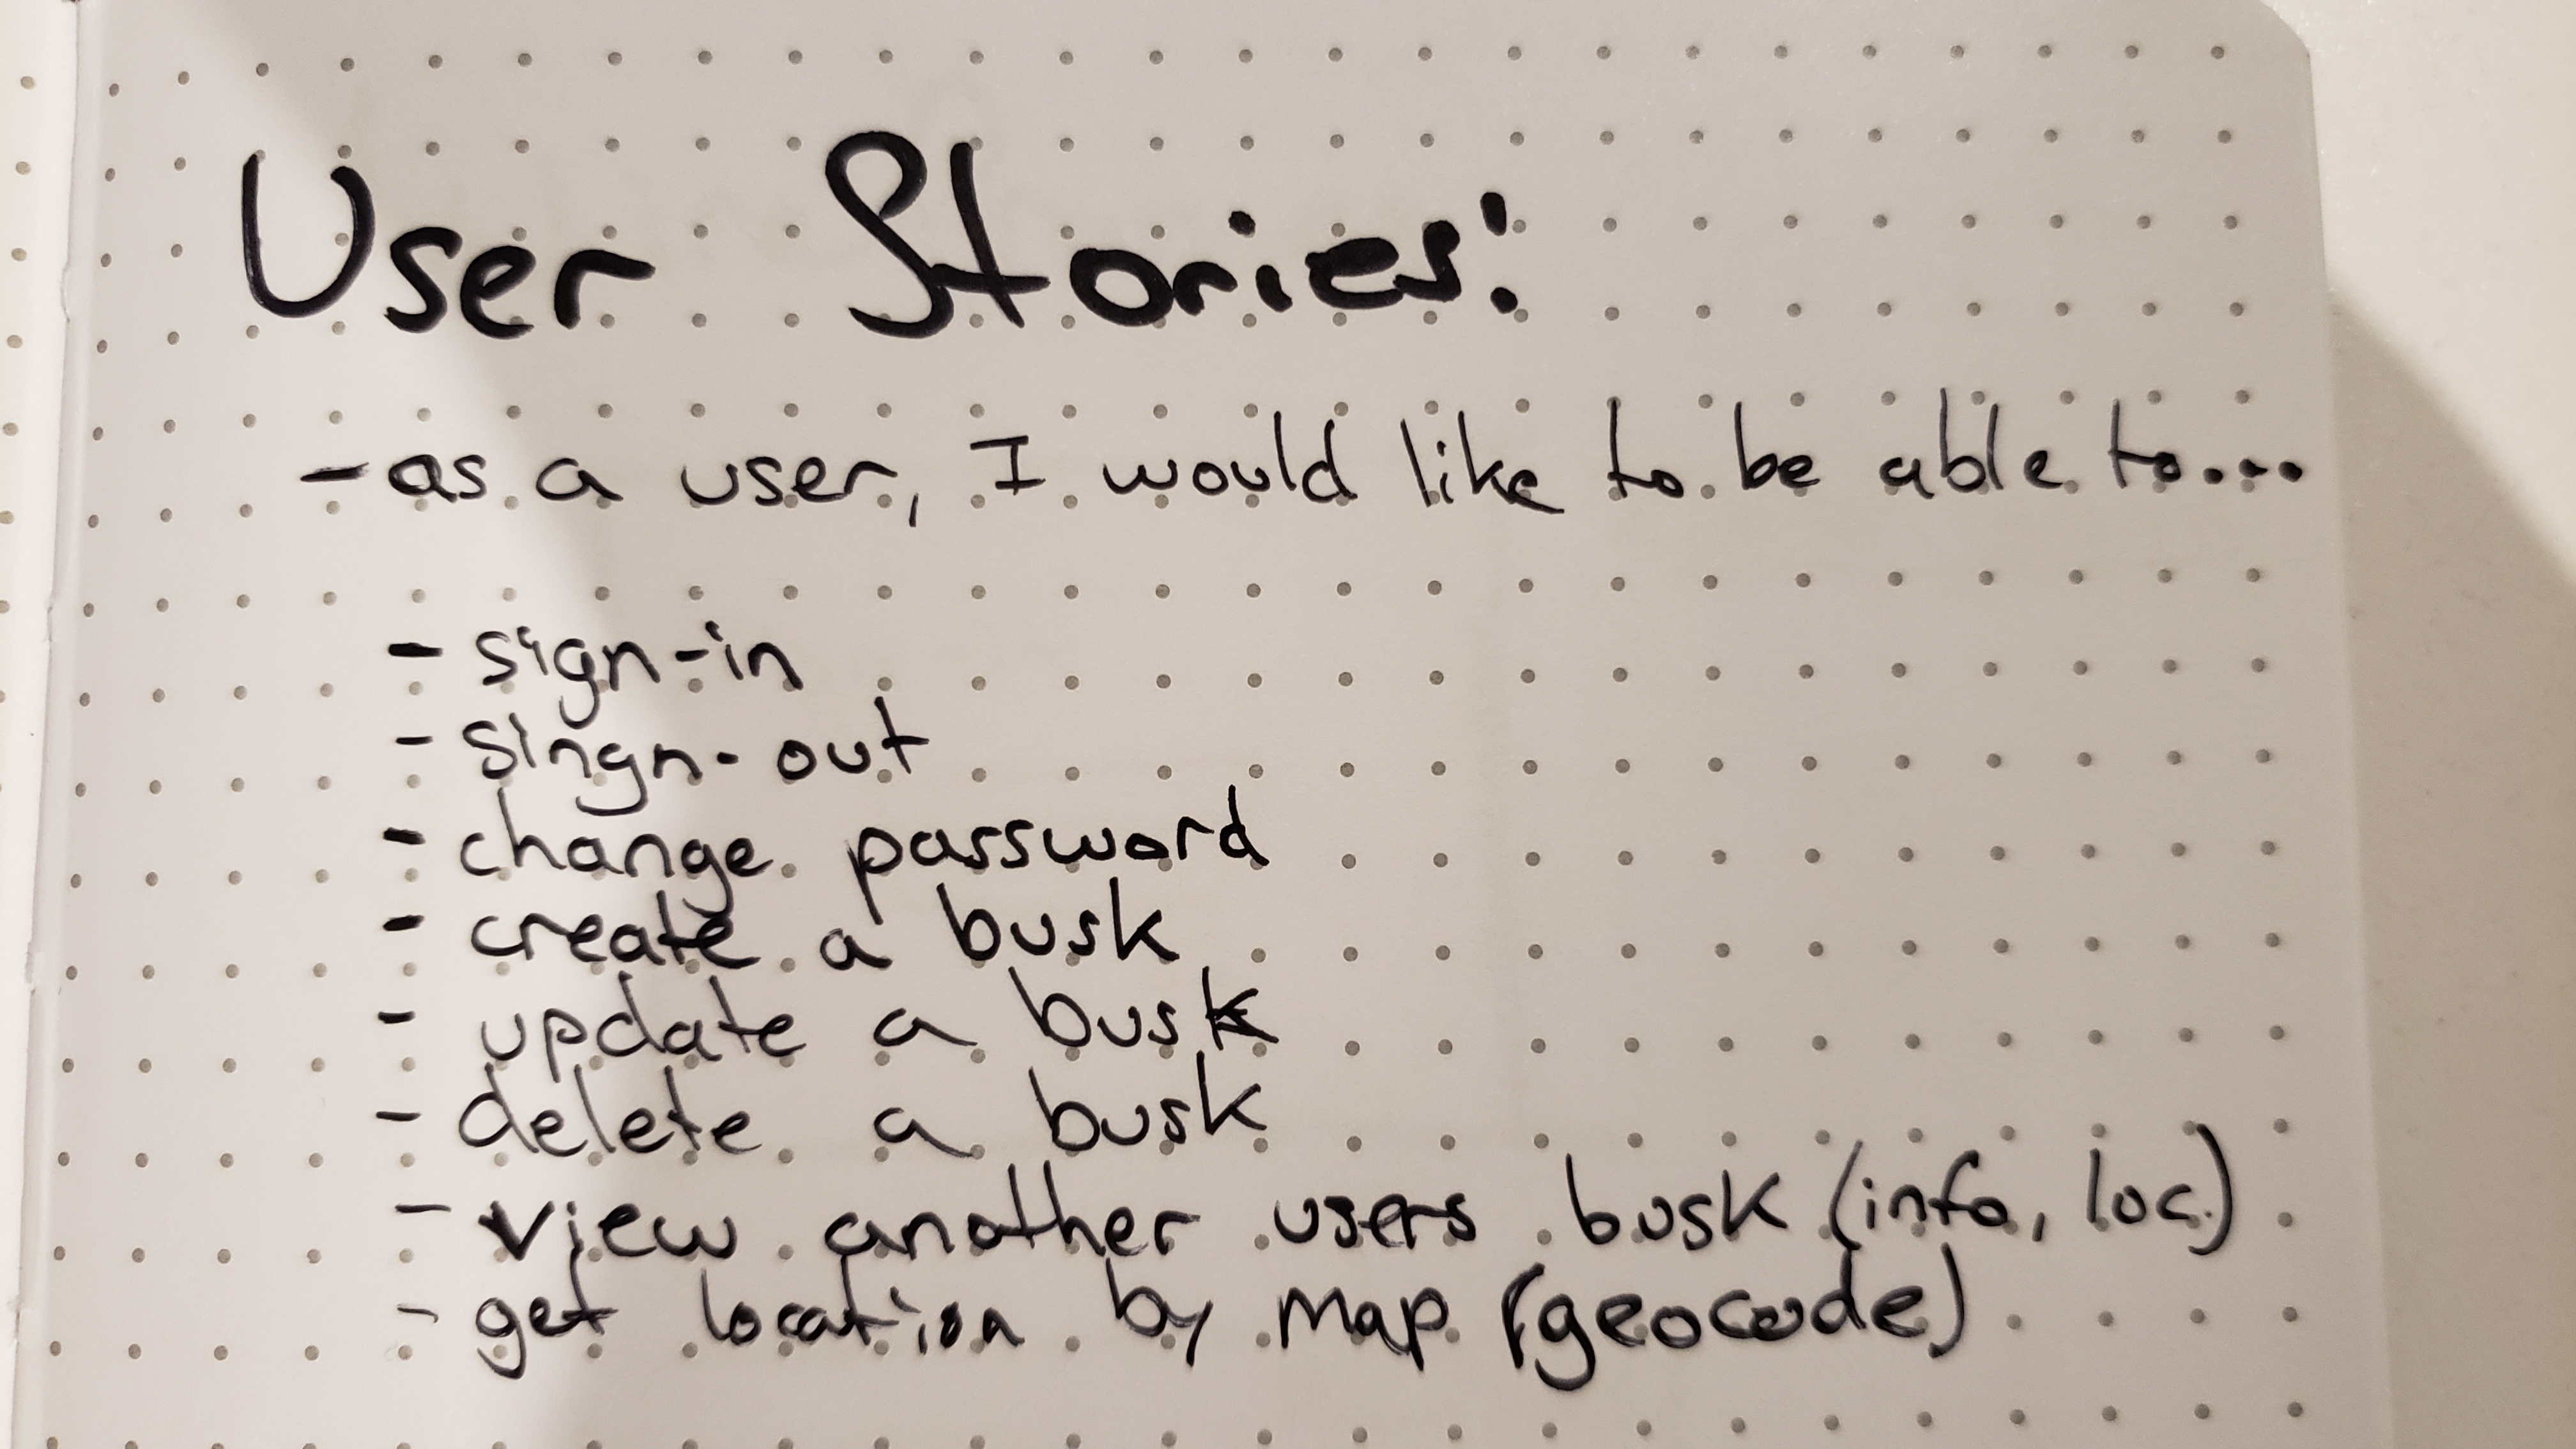 User Stories:
- as a user, I would like to be able to...
- sign-in
- singn-out
- change password
- create a busk
- update a busk
- delete a busk
- view another users busk (info, loc.)
- get location by map (geocode)